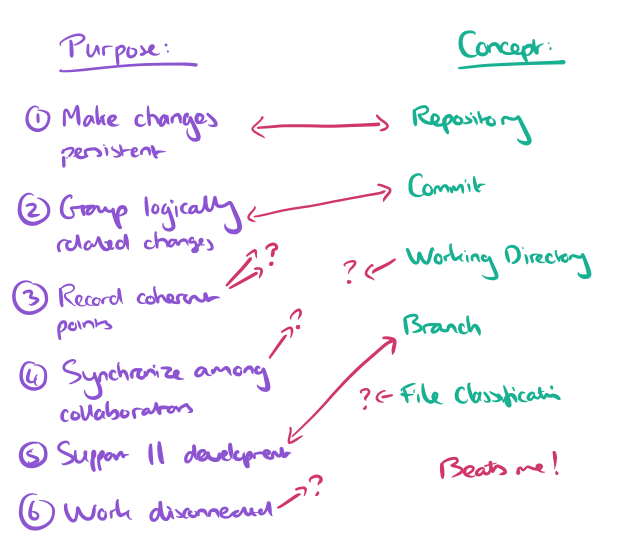 Purpose:
① Make changes
persistent
② Group logically
related changes
③ Record coherent
points
?
④ Synchronize among
collaborators
?
⑤ Support || development
⑥ Work disconnected
?
Concept:
Repository
Commit
? Working Directory
Branch
? File Classification
Beats me!